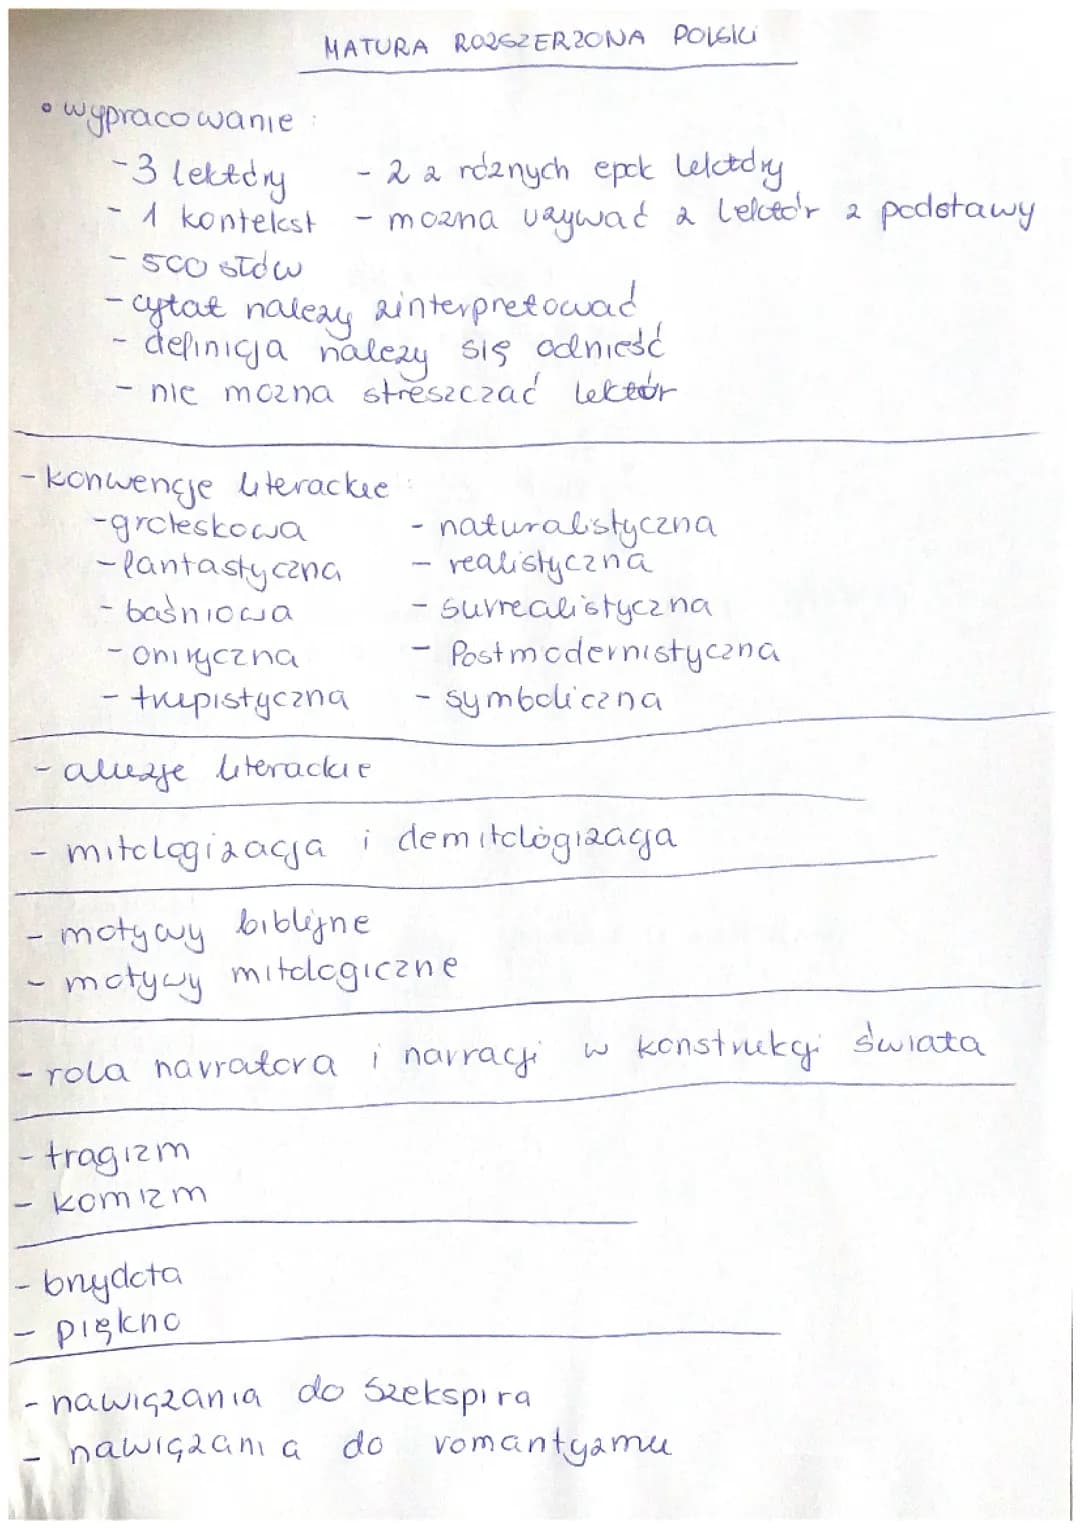 MATURA ROZSZERZONA POLSKI
• wypracowanie:
- 3 lektóry - 2 z róznych epok lektóry
- 1 kontekst - mozna uzywać z lektór z podstawy
- 500 słów
- cytat nalezy zinterpretować
- definicja nalezy się odnieść
- nie mozna streszczać lektór
- konwencje literackie:
- groteskowa - naturalistyczna
- fantastyczna - realistyczna
- baśniowa - surrealistyczna
- oniryczna - Postmodernistyczna
- turpistyczna - symboliczna
- aluzje literackie
- mitologizacja i demitologizacja
- motywy biblijne
- motywy mitologiczne
- rola narratora i narracji w konstrukcji świata
- tragizm
- komizm
- brzydota
- piękno
- nawiązania do Szekspira
- nawiązania do romantyzmu